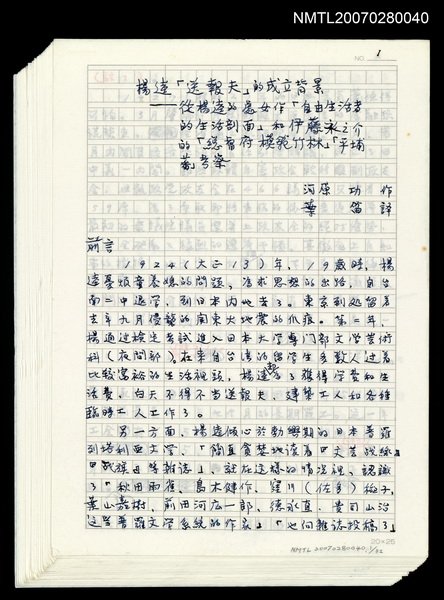 NMTL20070280040
NO. 1
楊逵「送報夫」的成立背景
——從楊逵的處女作「自由生活者
的生活剖面」和伊藤永之介
的「總督府模範竹林」「平埔
蕃」考察
河原 功 作
葉 笛 譯
前言
1924(大正13)年,19歲時,楊
逵憂煩童養媳的問題,為求思想的出路,自台
南二中退學,到日本內地去了。東京到處留著
去年九月侵襲的関東大地震的爪痕。第二年,
楊逵通過檢定考試進入日本大學專門部文學芸術
科(夜間部),在來自台灣的留學生多數人过着
比較富裕的生活裡頭,楊逵為了獲得学費和生
活費,白天不得不当送報夫、建築工人和各種
臨時工人工作了。
另一方面,楊逵傾心於勃興期的日本普羅
列塔利亜文学,「簡直貪婪地讀着『文芸戰線』
『戰旗』等雜誌」,就在这樣的情況裡,認識
了「秋田雨雀、島木健作、窪川(佐多)稲子、
葉山嘉樹、前田河広一郎、德永直、貴司山治
这些普羅文学系統的作家」「也向雜誌投稿了」
20×25
NMTL 20070280040,1/92